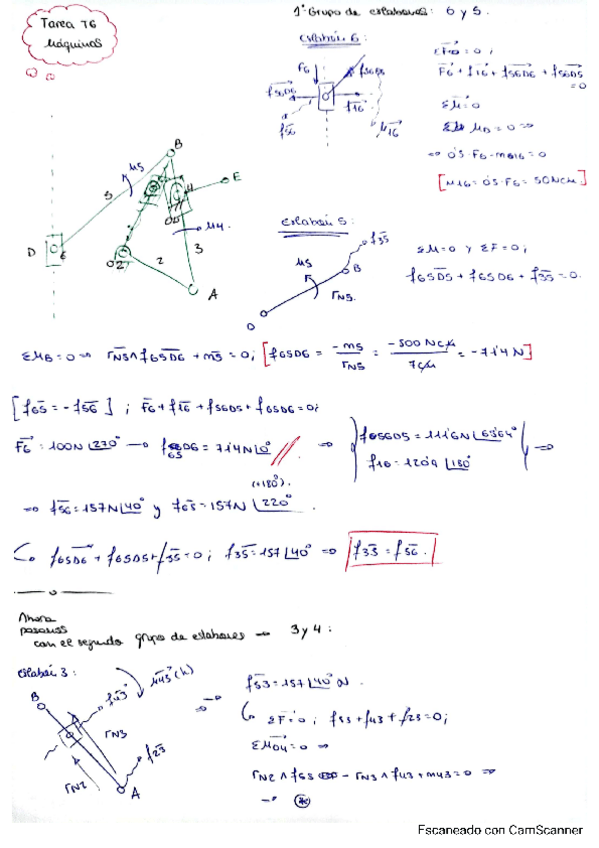 Tarea T6
Máquinas
1º Grupo de eslabones: 6 y 5.
Eslabón 6:
F6
f56D5
f56D6
f16
f56
M16
ΣF=0;
F6 + f16 + f56D6 + f56D5
=0
ΣM=0
ΣMD=0 ⇒
⇒ 0'5·F6-m016=0
[M16=0'5·F6=50Ncm]
B
M5
5
4
E
M4
D
6
O2
2
3
A
Eslabón 5:
f35
M5
B
rN5.
D
ΣM=0 y ΣF=0;
f65D5 + f65D6 + f35=0.
ΣMB=0 ⇒ rN5∧f65D6 + m5=0; [f65D6 = -m5/rN5 = -500Ncm/7cm = -71'4N]
[f65=-f56]; F6+f16+f56D5+f65D6=0;
F6=100N∠270° → f65D6=71'4N∠0° ⇒ f056D5=111'6N∠63'64° ⇒
f16=120'9∠180°
(+180°).
⇒ f56=157N∠40° y f65=157N∠220°
f65D6 + f65D5+f35=0; f35=157∠40° ⇒ f35=f56.
Ahora
pasamos
con el segundo grupo de eslabones → 3 y 4:
eslabón 3:
B
f43
M43(h)
rN3
f23
rN2
A
f53=157∠40°N.
ΣF=0; f53+f43+f23=0;
ΣMO4=0 ⇒
rN2∧f53 - rN3∧f43+m43=0 ⇒
Escaneado con CamScanner